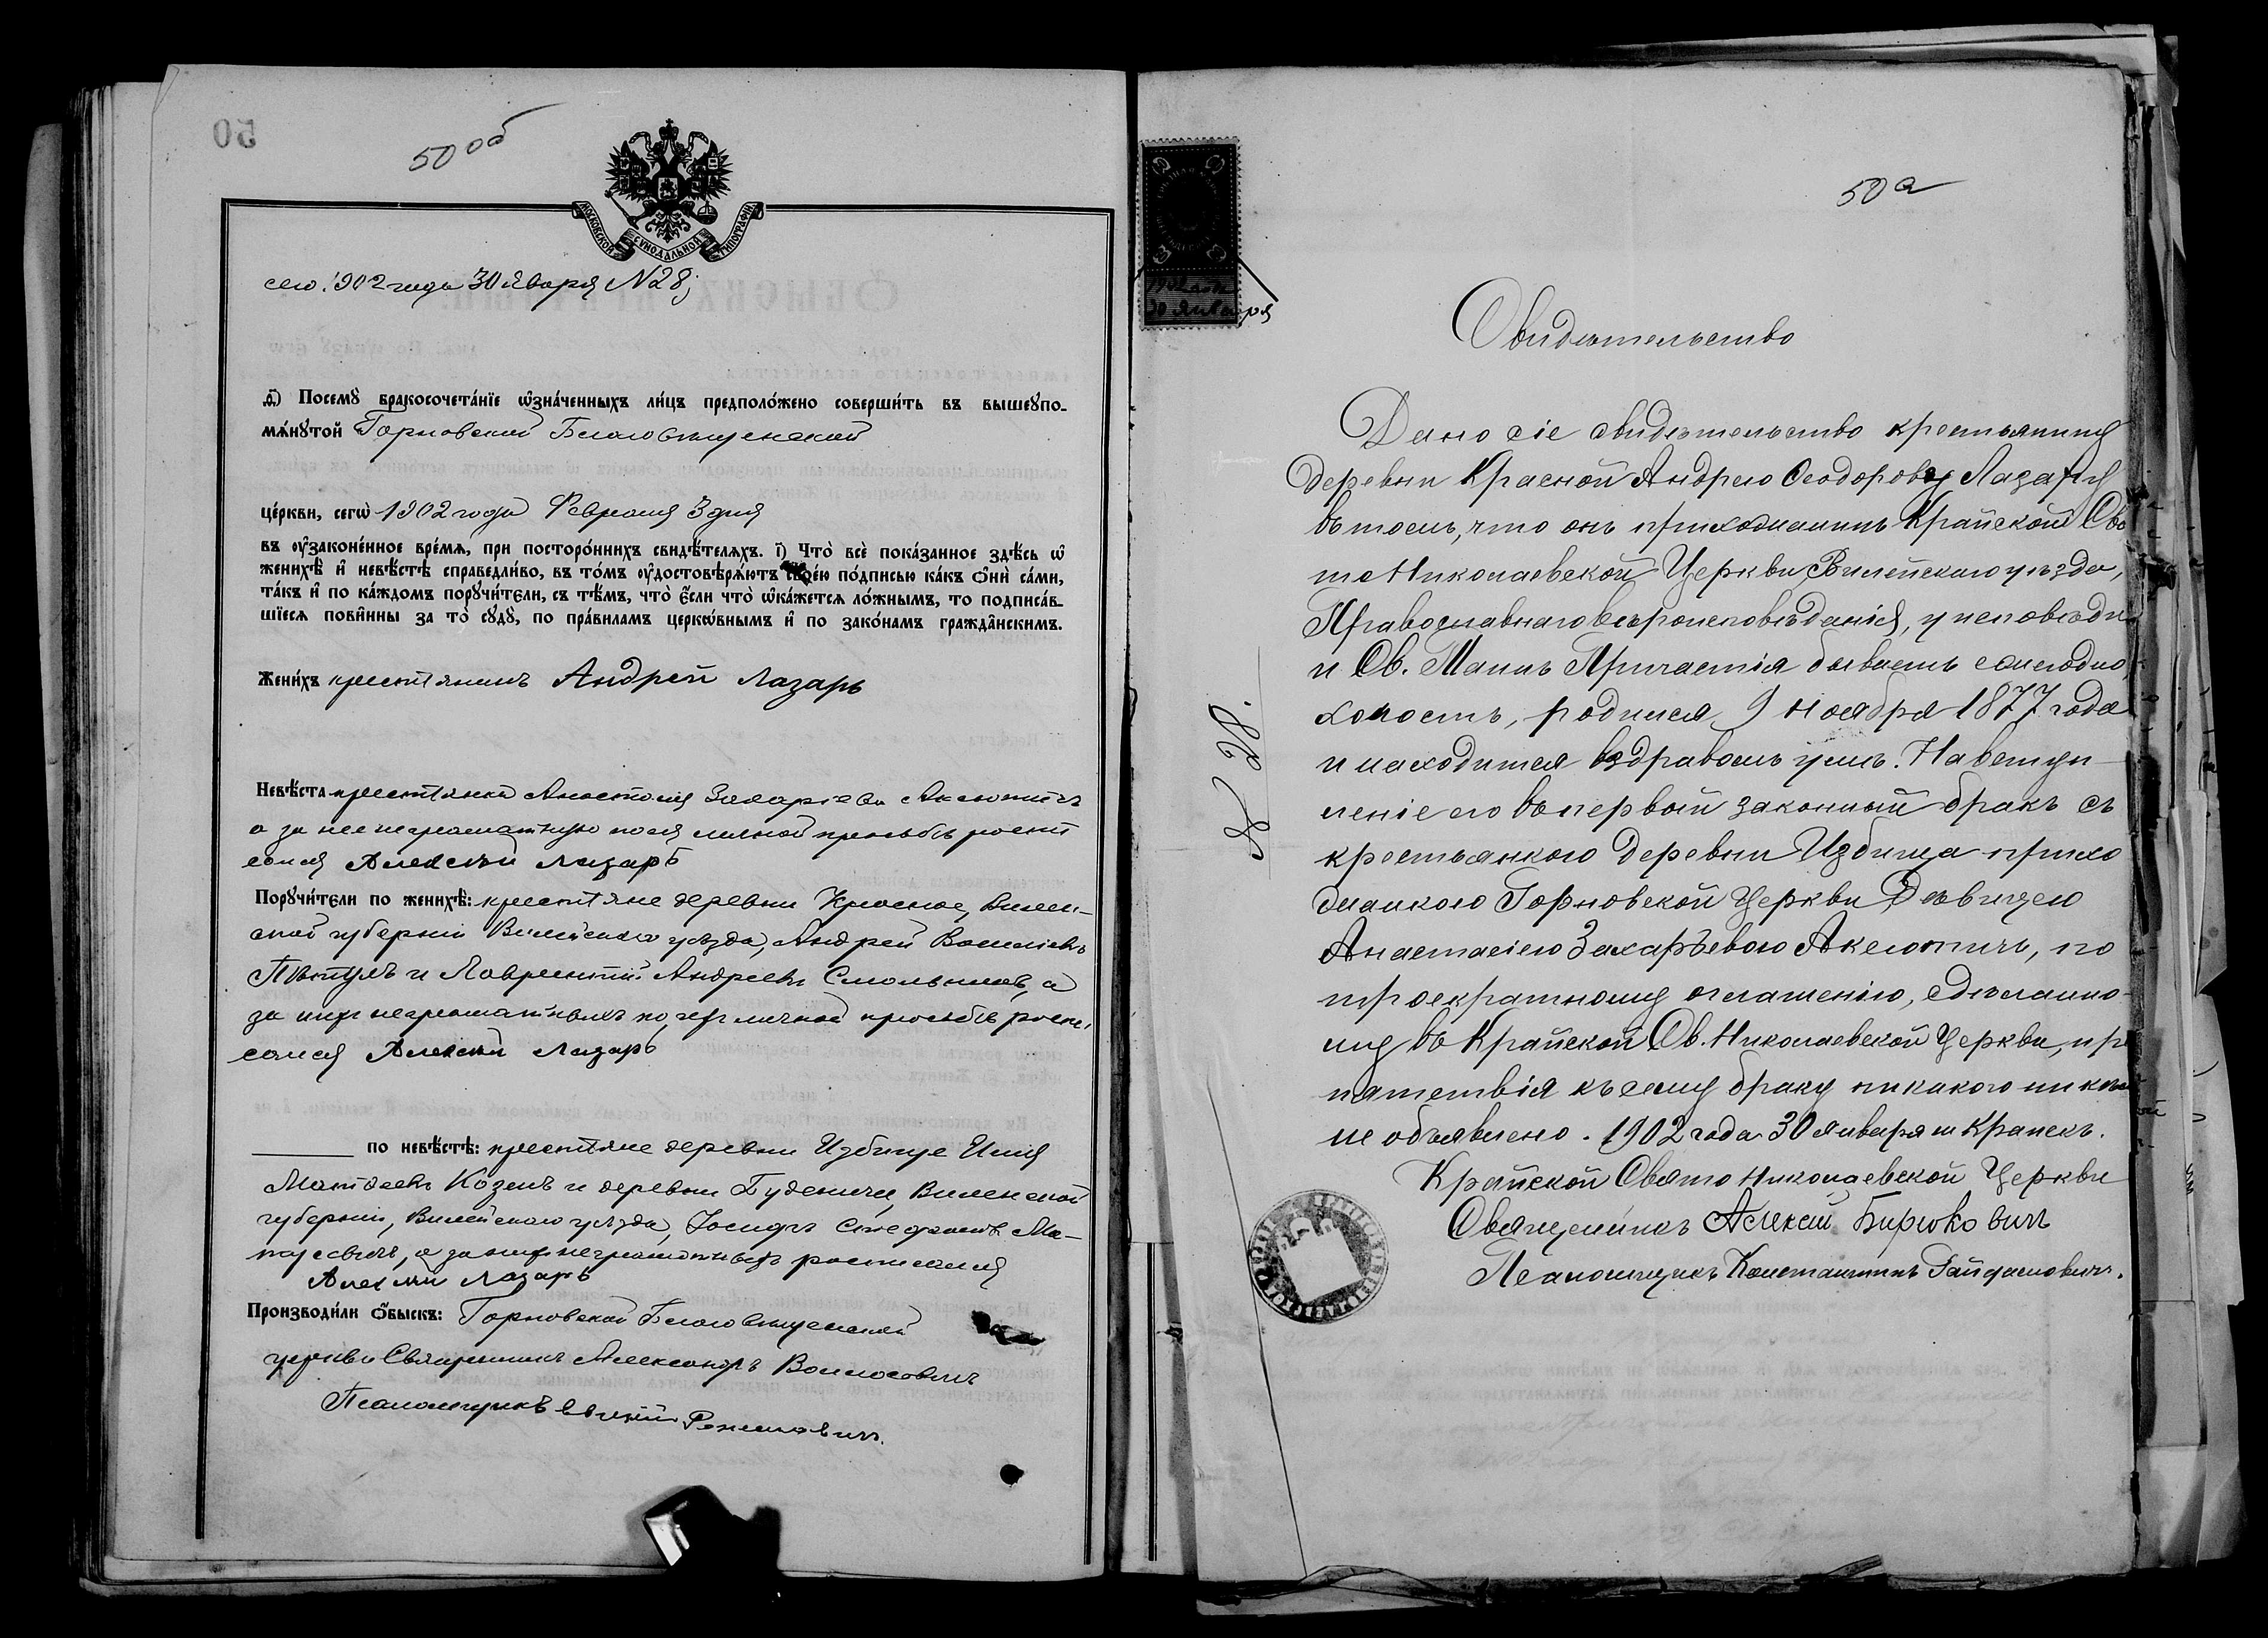 50
50 об
МОСКОВСКОЙ СѴНОДАЛЬНОЙ ТИПОГРАФІИ
сего 1902 года 30 Января N 28;
Ѳ҃) Посемꙋ̀ бракосочета́нїе ѡ҆зна́ченныхъ ли́цъ предполо́жено соверши́ть въ вышеꙋпо-
мѧ́нꙋтой Горновской Благовѣщенской
це́ркви, сегѡ̀ 1902 года Февраля 3 дня
въ ᲂу҆законе́нное вре́мѧ, при посторо́ннихъ свидѣ́телѧхъ. І҃) Что̀ всѐ пока́занное здѣ́сь ѡ҆
женихѣ̀ и҆ невѣ́стѣ справедли́во, въ то́мъ ᲂу҆достовѣрѧ́ютъ свое́ю по́дписью ка́къ ѻ҆нѝ са́ми,
та́къ и҆ по ка́ждомъ порꙋчи́тели, съ тѣ́мъ, что̀ є҆́сли что̀ ѡ҆ка́жетсѧ ло́жнымъ, то подписа́в-
шїесѧ пови́нны за то̀ сꙋдꙋ̀, по пра́виламъ церко́внымъ и҆ по зако́намъ гражда́нскимъ.
Жени́хъ крестьянинъ Андрей Лазарь
Невѣ́ста крестьянка Анастасія Захаріева Аксютичъ
а за нее неграмотную по ея личной просьбѣ роспи
сался Алексѣй Лазарь
Порꙋчи́тели по женихѣ̀: крестьяне деревни Красное, Вилен-
ской губерніи Вилейскаго уѣзда, Андрей Василіевъ
и Лаврентій Андреевъ а
за ихъ неграмотныхъ по ихъ личной просьбѣ роспи-
сался Алексѣй Лазарь
по невѣ́стѣ: крестьяне деревни Избище Илія
Матвѣевъ Козелъ и деревни Будевичи, Виленской
губерніи, Вилейскаго уѣзда, Іосифъ Стефановъ Ма-
каревичъ, а за ихъ неграмотныхъ росписался
Алексѣй Лазарь
Производи́ли ѻ҆́быскъ: Горновской Благовѣщенской
церкви Священникъ Александръ
Псаломщикъ
50 а
1902 года
30 Января
Свидѣтельство
Дано сіе свидѣтельство крестьянину
деревни Красной Андрею Ѳеодорову Лазарю
въ томъ, что онъ прихожанинъ Крайской Свя
то Николаевской Церкви, Вилейскаго уѣзда,
Православнаго вѣроисповѣданія, у исповѣди
и Св. Таинъ Причастія бываетъ ежегодно,
холостъ, родился 9 ноября 1877 года
и находится въ здравомъ умѣ. На вступ-
леніе его въ первый законный бракъ съ
крестьянкою деревни Избища прихо
жанкою Горновской Церкви, Дѣвицею
Анастасіею Захарьевою Аксютичъ, по
троекратному оглашенію, сдѣланно-
му въ Крайской Св. Николаевской Церкви, пре
пятствія къ сему браку никакого никѣмъ
не объявлено. 1902 года 30 января м. Крайскъ.
Крайской Свято Николаевской Церкви
Священникъ Алексѣй Бирюковичъ
Псаломщикъ Константинъ Гайдамовичъ.
N 28.